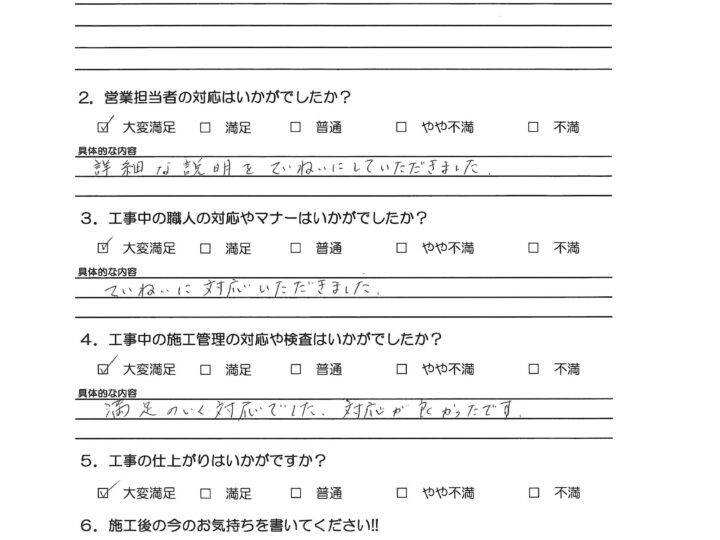 2. 営業担当者の対応はいかがでしたか？
☑ 大変満足 □ 満足 □ 普通 □ やや不満 □ 不満
具体的な内容
詳細な説明をていねいにしていただきました。
3. 工事中の職人の対応やマナーはいかがでしたか？
☑ 大変満足 □ 満足 □ 普通 □ やや不満 □ 不満
具体的な内容
ていねいに対応いただきました。
4. 工事中の施工管理の対応や検査はいかがでしたか？
☑ 大変満足 □ 満足 □ 普通 □ やや不満 □ 不満
具体的な内容
満足のいく対応でした、対応が良かったです。
5. 工事の仕上がりはいかがですか？
☑ 大変満足 □ 満足 □ 普通 □ やや不満 □ 不満
6. 施工後の今のお気持ちを書いてください!!